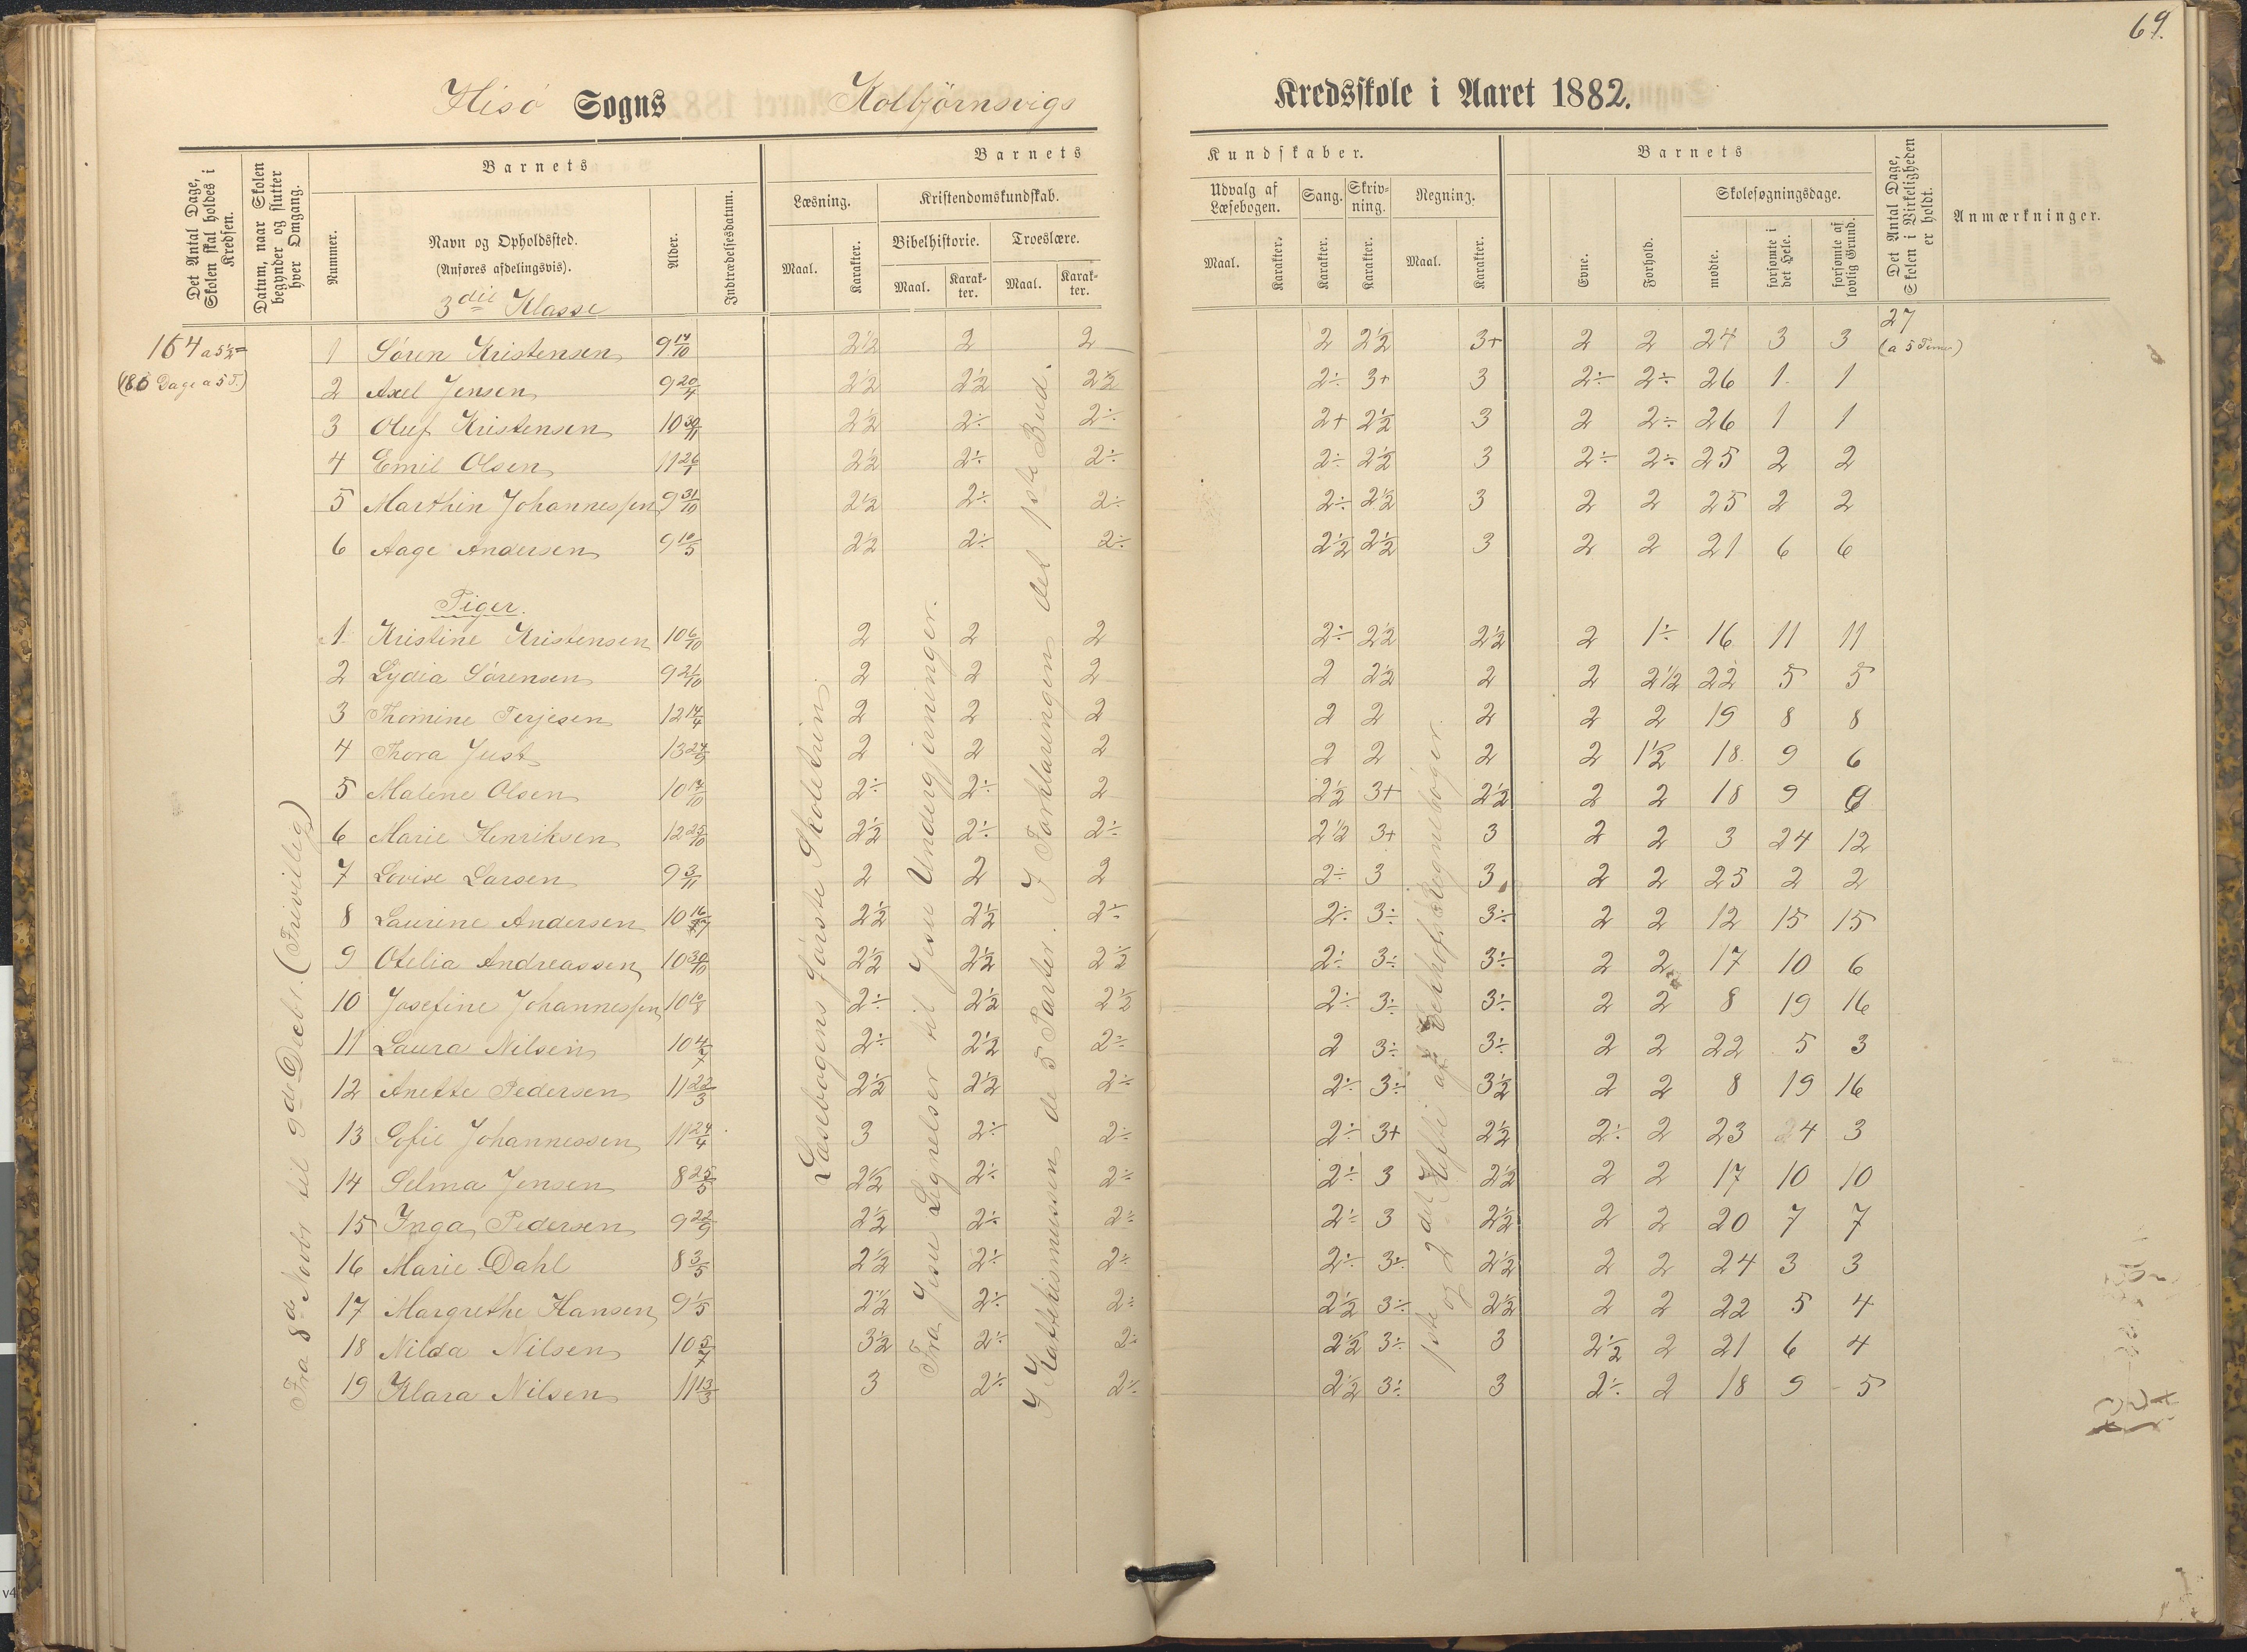 69.
Hisö Sogns Kolbjörnsvigs Kredsskole i Aaret 1882.
Det Antal Dage, Skolen skal holdes i Kredsen.
Datum, naar Skolen begynder og slutter hver Omgang.
Barnets
Nummer.
Navn og Opholdssted.
(Anføres afdelingsvis).
3die Klasse
Alder.
Indtrædelsesdatum.
Barnets Kundskaber.
Læsning.
Maal. Karakter.
Kristendomskundskab.
Bibelhistorie. Troeslære.
Maal. Karakter. Maal. Karakter.
Udvalg af Læsebogen.
Maal. Karakter.
Sang. Karakter.
Skrivning. Karakter.
Regning.
Maal. Karakter.
Barnets
Evne. Forhold.
Skolesøgningsdage.
mødte. forsømte i det Hele. forsømte af lovlig Grund.
Det Antal Dage, Skolen i Virkeligheden er holdt.
Anmærkninger.
164 a 5½ =
(186 Dage a 5 T.)
27
(a 5 Timer)
1 Søren Kristensen 9 14/10 2½ 2 2 2 2½ 3+ 2 2 24 3 3
2 Axel Jensen 9 20/4 2½ 2½ 2½ 2÷ 3+ 3 2÷ 2÷ 26 1 1
3 Oluf Kristensen 10 30/11 2½ 2÷ 2÷ 2+ 2½ 3 2 2÷ 26 1 1
4 Emil Olsen 11 26/1 2½ 2÷ 2÷ 2÷ 2½ 3 2÷ 2÷ 25 2 2
5 Marthin Johannessen 9 31/10 2½ 2÷ 2÷ 2÷ 2½ 3 2 2 25 2 2
6 Aage Andersen 9 10/5 2½ 2÷ 2÷ 2½ 2½ 3 2 2 21 6 6
Piger.
1 Kristine Kristensen 10 6/10 2 2 2 2÷ 2½ 2½ 2 1÷ 16 11 11
2 Lydia Sørensen 9 21/10 2 2 2 2 2½ 2 2 2½ 22 5 5
3 Thomine Terjesen 12 14/4 2 2 2 2 2 2 2 2 19 8 8
4 Thora Just 13 24/9 2 2 2 2 2 2 2 1½ 18 9 6
5 Malene Olsen 10 17/10 2÷ 2÷ 2 2½ 3+ 2½ 2 2 18 9
6 Marie Henriksen 12 25/10 2½ 2÷ 2÷ 2½ 3+ 3 2 2 3 24 12
7 Lovise Larsen 9 3/11 2 2 2 2÷ 3 3 2 2 25 2 2
8 Laurine Andersen 10 2½ 2½ 2÷ 2÷ 3÷ 3÷ 2 2 12 15 15
9 Otelia Andreassen 10 30/10 2½ 2½ 2½ 2÷ 3÷ 3÷ 2 2 17 10 6
10 Josefine Johannessen 10 10/8 2÷ 2½ 2½ 2÷ 3÷ 3÷ 2 2 8 19 16
11 Laura Nilsen 10 4/7 2÷ 2½ 2÷ 2 3÷ 3÷ 2 2 22 5 3
12 Anette Pedersen 11 22/3 2½ 2½ 2÷ 2÷ 3÷ 3½ 2 2 8 19 16
13 Sofie Johannessen 11 24/4 3 2÷ 2÷ 2÷ 3+ 2½ 2÷ 2 23 4 3
14 Selma Jensen 8 25/5 2½ 2÷ 2÷ 2÷ 3 2½ 2 2 17 10 10
15 Inga Pedersen 9 22/9 2½ 2÷ 2÷ 2÷ 3 2½ 2 2 20 7 7
16 Marie Dahl 8 3/5 2½ 2÷ 2÷ 2÷ 3÷ 2½ 2 2 24 3 3
17 Margrethe Hansen 9 1/5 2½ 2÷ 2÷ 2½ 3÷ 2½ 2 2 22 5 4
18 Nilda Nilsen 10 5/7 3½ 2÷ 2÷ 2½ 3÷ 3 2½ 2 21 6 4
19 Klara Nilsen 11 13/3 3 2÷ 2÷ 2½ 3÷ 3 2÷ 2 18 9 5
Fra 8de Novbr til 9de Decbr. (Frivillig)
Læsebogens første Skoletrin.
Fra Jesu Lignelser til Jesu Undergjerninger.
I Katekismussen de 5 Parter. I Forklaringen det 1ste Bud.
1ste og 2det Hefte af Regnebøger